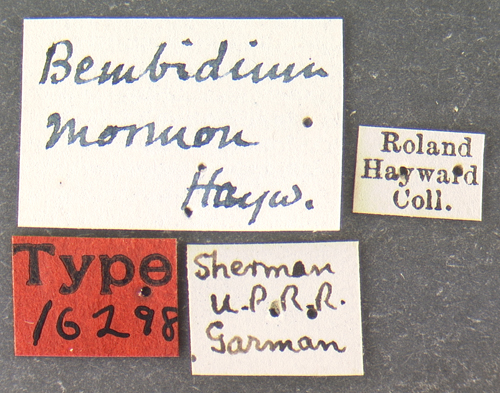 Bembidium
mormon
Hayw.
Roland
Hayward
Coll.
Type
16298
Sherman
U.P.R.R.
Garman